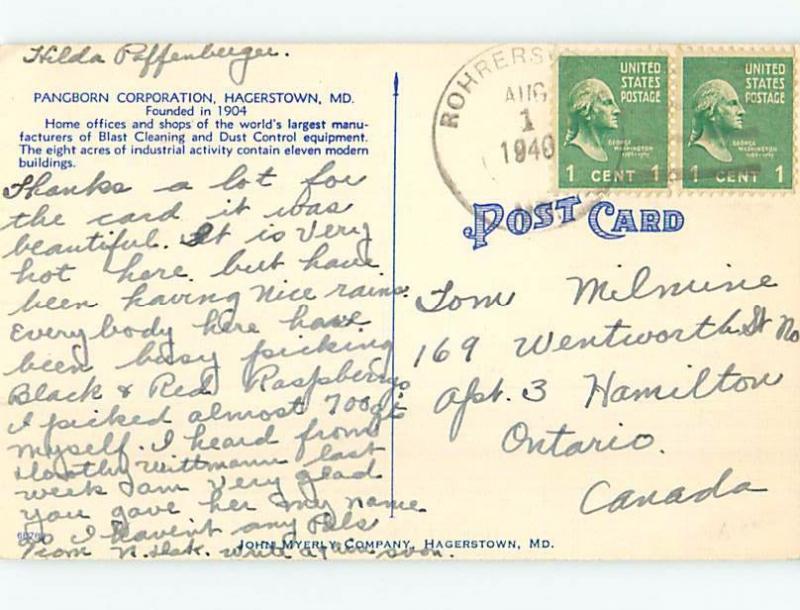 Hilda Poffenberger.
PANGBORN CORPORATION, HAGERSTOWN, MD.
Founded in 1904
Home offices and shops of the world's largest manu-
facturers of Blast Cleaning and Dust Control equipment.
The eight acres of industrial activity contain eleven modern
buildings.
Thanks a lot for
the card it was
beautiful. It is Very
hot here but have
been having Nice rains.
Everybody here have
been busy picking
Black & Red Raspberrys
I picked almost 700qts
myself. I heard from
Dorothy Wittmann last
week I am very glad
you gave her my name
as I haven't any Pals
from N. Dak. write again soon.
ROHRERS
AUG
1
1940
UNITED
STATES
POSTAGE
GEORGE
WASHINGTON
1 CENT 1
UNITED
STATES
POSTAGE
GEORGE
WASHINGTON
1 CENT 1
POST CARD
Tom Milmine
169 Wentworth St No
Apt. 3 Hamilton
Ontario.
Canada
JOHN MYERLY COMPANY, HAGERSTOWN, MD.